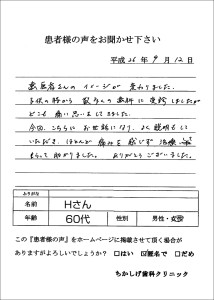 患者様の声をお聞かせ下さい
平成 26 年 9 月 12 日
歯医者さんの イメージが 変わりました。
子供の時から 数多くの歯科に 受診しましたが
どこも 痛い思いをしてきました。
今回、こちらに お世話になり、よく説明もして
いただき、ほとんど痛みを 感じず 治療して
もらって 助かりました。 ありがとうございました。
ふりがな
名前 Hさん
年齢 60代 性別 男性・女性
この『患者様の声』をホームページに掲載させて頂く場合が
ありますがよろしいでしょうか? □はい ☑匿名で □だめ
ちかしげ歯科クリニック